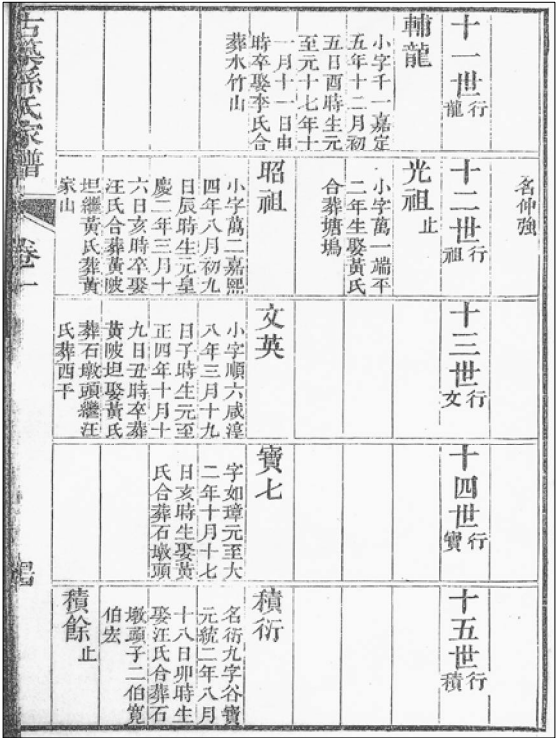 名仲強
十一世龍行
輔龍
小字千一嘉定
五年十二月初
五日酉時生元
至元十七年十
一月十一日申
時卒娶李氏合
葬水竹山
十二世祖行
光祖止
小字萬一端平
二年生娶黃氏
合葬塘塢
昭祖
小字萬二嘉熙
四年八月初九
日辰時生元皇
慶二年三月十
六日亥時卒娶
汪氏合葬黃陂
坦繼黃氏葬黃
家山
十三世文行
文英
小字順六咸淳
八年三月十九
日子時生元至
正四年十月十
九日丑時卒葬
黃陂坦娶黃氏
葬石墩頭繼汪
氏葬西干
十四世寶行
寶七
字如璋元至大
二年十月十七
日亥時生娶黃
氏合葬石墩頭
十五世積行
積衍
名衍九字谷寶
元統二年八月
十八日卯時生
娶汪氏合葬石
墩頭子二伯寬
伯宏
積餘止
古築孫氏家譜
卷一